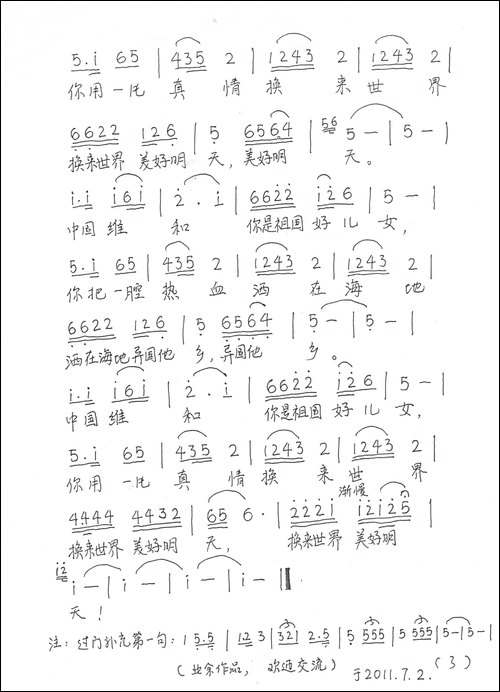 5.i 65 | 435 2 | 1243 2 | 1243 2 |
你用一片 真 情 换 来 世 界
6622 126 | 5 6564 | 56 5 — | 5 — |
换来世界 美好明 天, 美好明 天。
i.i i6i | 2 . i | 6622 i26 | 5 — |
中国 维 和 你是祖国 好 儿 女,
5.i 65 | 435 2 | 1243 2 | 1243 2 |
你把一腔 热 血 洒 在 海 地
6622 126 | 5 6564 | 5 — | 5 — |
洒在海地异国他 乡, 异国他 乡。
i.i i6i | 2 . i | 6622 i26 | 5 — |
中国 维 和 你是祖国 好 儿 女,
5.i 65 | 435 2 | 1243 2 | 1243 2 |
你用一片 真 情 换 来 世 界
渐慢
4444 4432 | 65 6. | 222i i2i25 |
换来世界 美好明 天, 换来世界 美好明
i2 i — | i — | i — | i — ‖
天!
注: 过门补充第一句: | 5.5 | 12 3 | 321 2.5 | 5 555 | 5 555 | 5 — | 5 — |
(业余作品, 欢迎交流) 于2011.7.2. (3)